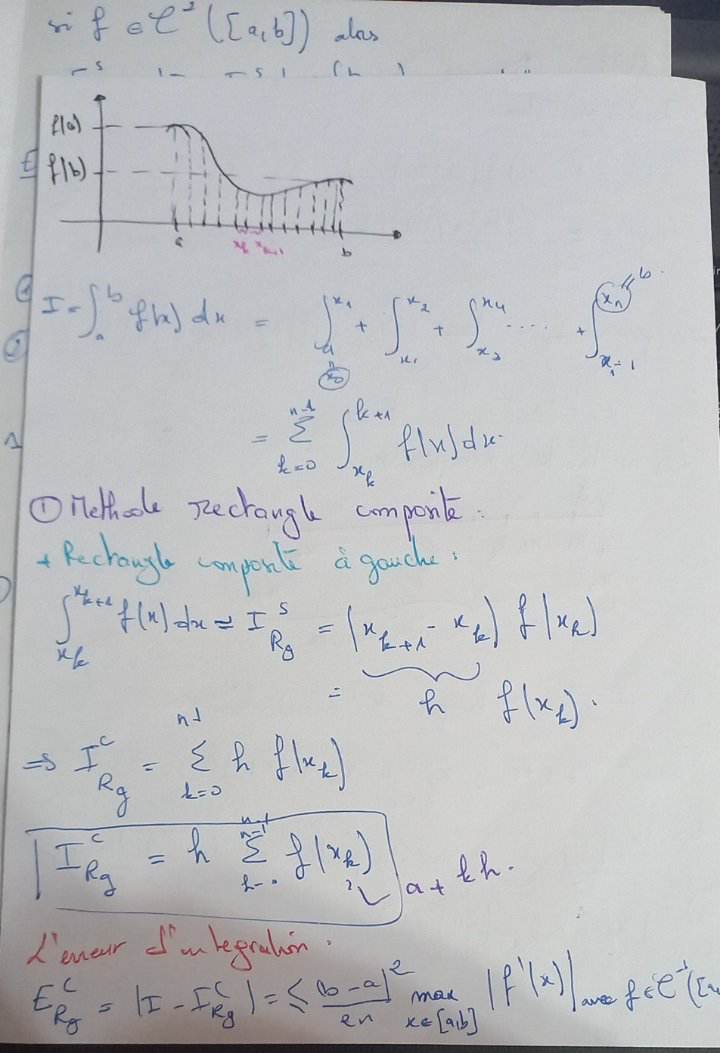 si f ∈ C¹([a,b]) alors
f(a)
f(b)
a x_k x_{k+1} b
I = ∫_a^b f(x) dx = ∫_{a = x_0}^{x_1} + ∫_{x_1}^{x_2} + ∫_{x_3}^{x_4} ..... + ∫_{x_{n-1}}^{x_n = b}
= Σ_{k=0}^{n-1} ∫_{x_k}^{k+1} f(x) dx.
① Methode rectangle composite :
+ Rectangle composité à gauche :
∫_{x_k}^{x_{k+1}} f(x) dx ≃ I_{Rg}^S = (x_{k+1} - x_k) f(x_k)
= h f(x_k).
⇒ I_{Rg}^C = Σ_{k=0}^{n-1} h f(x_k)
I_{Rg}^C = h Σ_{k=0}^{n-1} f(x_k) a + kh.
L'erreur d'integration :
E_{Rg}^C = |I - I_{Rg}^C| = ≤ (b-a)²/2n max_{x∈[a,b]} |f'(x)| avec f ∈ C¹([a,